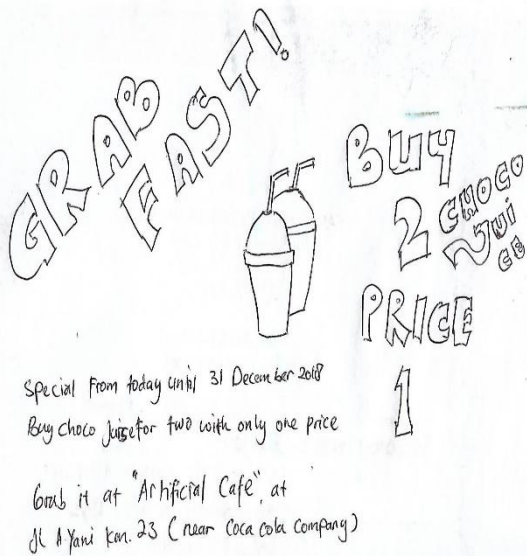 GRAB
FAST!
BUY
2 CHOCO
JUICE
PRICE
1
Special From today until 31 December 2018
Buy choco juise for two with only one price
Grab it at "Artificial Cafe", at
Jl A Yani km. 23 (near Coca cola company)